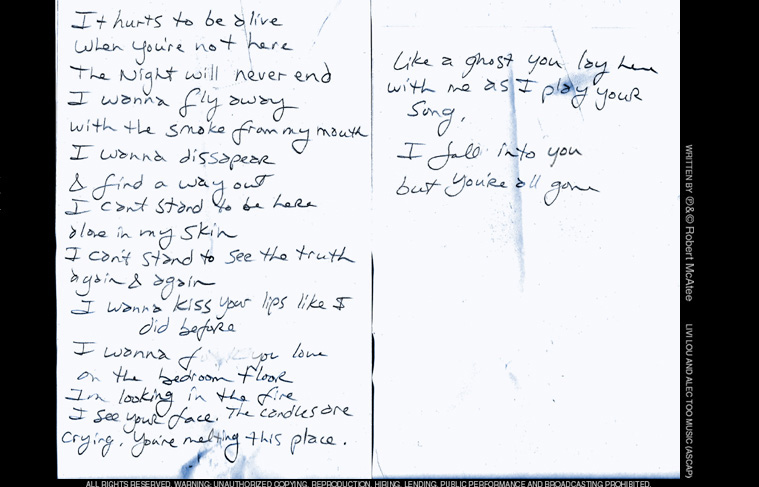 It hurts to be alive
when you're not here
the Night will never end
I wanna fly away
with the smoke from my mouth
I wanna dissapear
& find a way out
I cant stand to be here
alone in my skin
I can't stand to see the truth
again & again
I wanna kiss your lips like I
did before
I wanna you love
on the bedroom floor
Im looking in the fire
I see your face. The candles are
crying. You're melting this place.
Like a ghost you lay here
with me as I play your
song,
I fall into you
but you're all gone
WRITTEN BY ℗&© Robert McAtee
LIVI LOU AND ALEC TOO MUSIC (ASCAP)
ALL RIGHTS RESERVED. WARNING: UNAUTHORIZED COPYING, REPRODUCTION, HIRING, LENDING, PUBLIC PERFORMANCE AND BROADCASTING PROHIBITED.